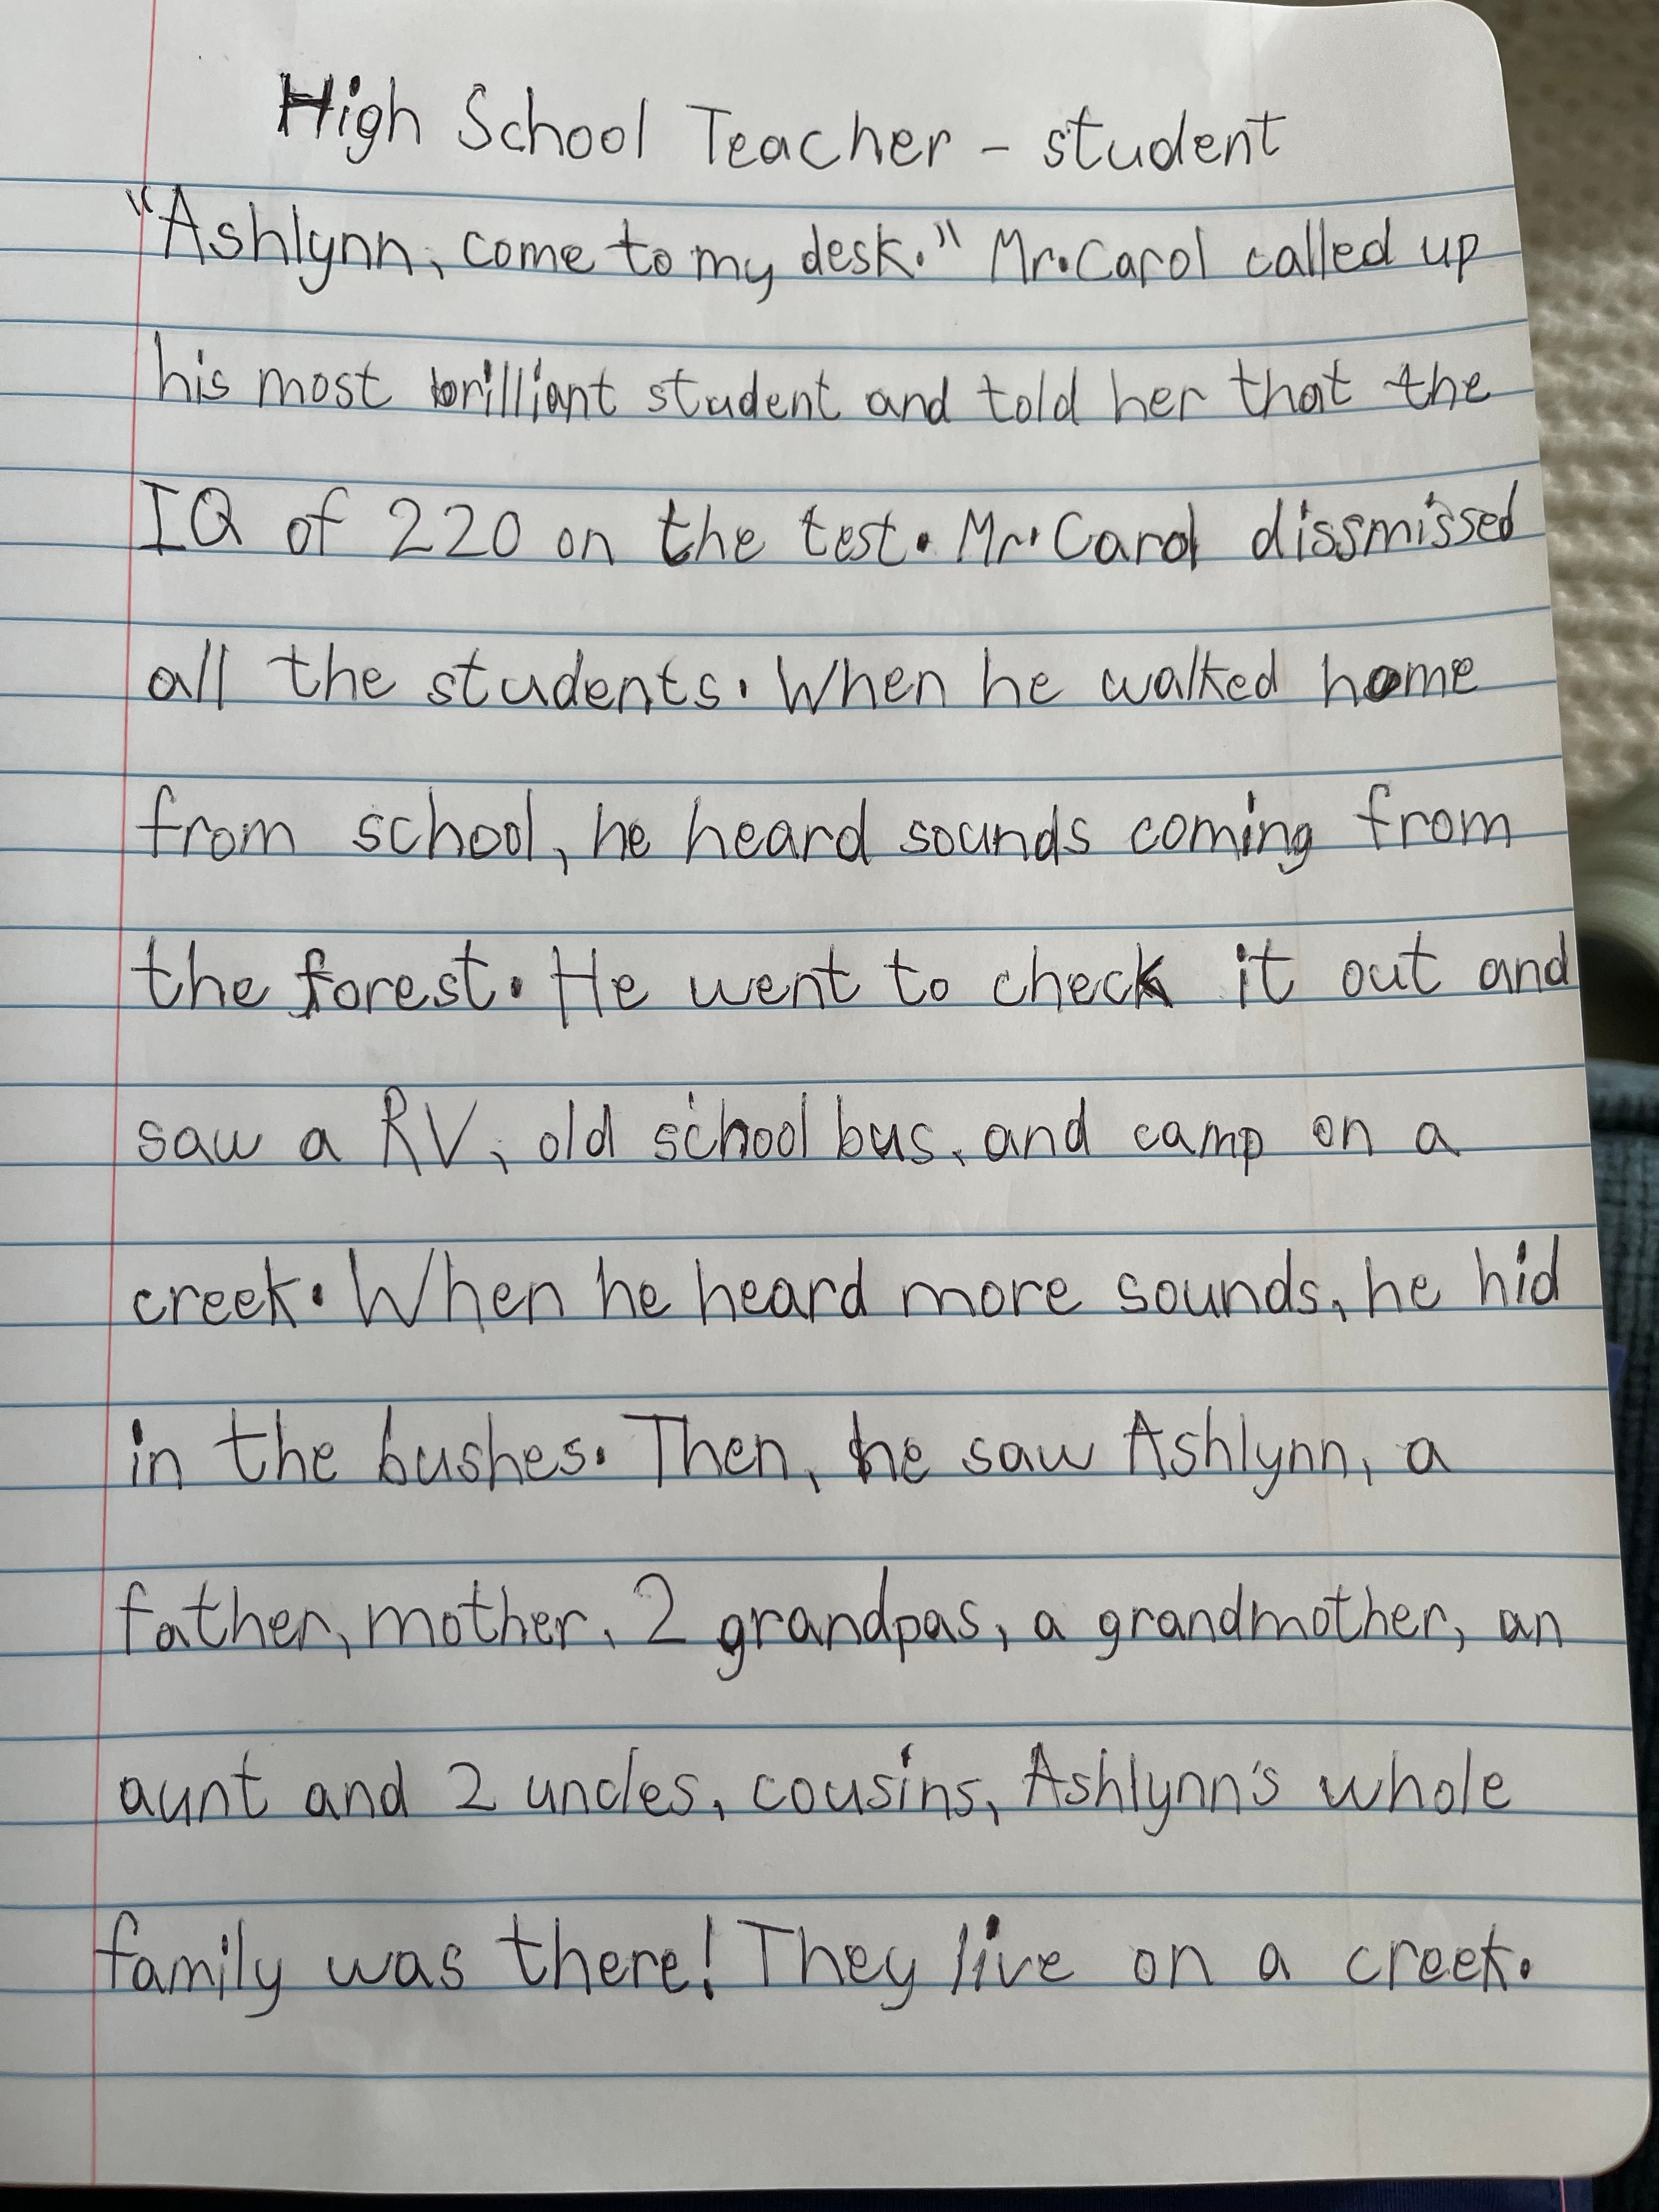 High School Teacher - student
"Ashlynn, come to my desk." Mr. Carol called up
his most brilliant student and told her that the
IQ of 220 on the test. Mr. Carol dissmissed
all the students. When he walked home
from school, he heard sounds coming from
the forest. He went to check it out and
saw a RV, old school bus, and camp on a
creek. When he heard more sounds, he hid
in the bushes. Then, he saw Ashlynn, a
father, mother, 2 grandpas, a grandmother, an
aunt and 2 uncles, cousins, Ashlynn's whole
family was there! They live on a creek.